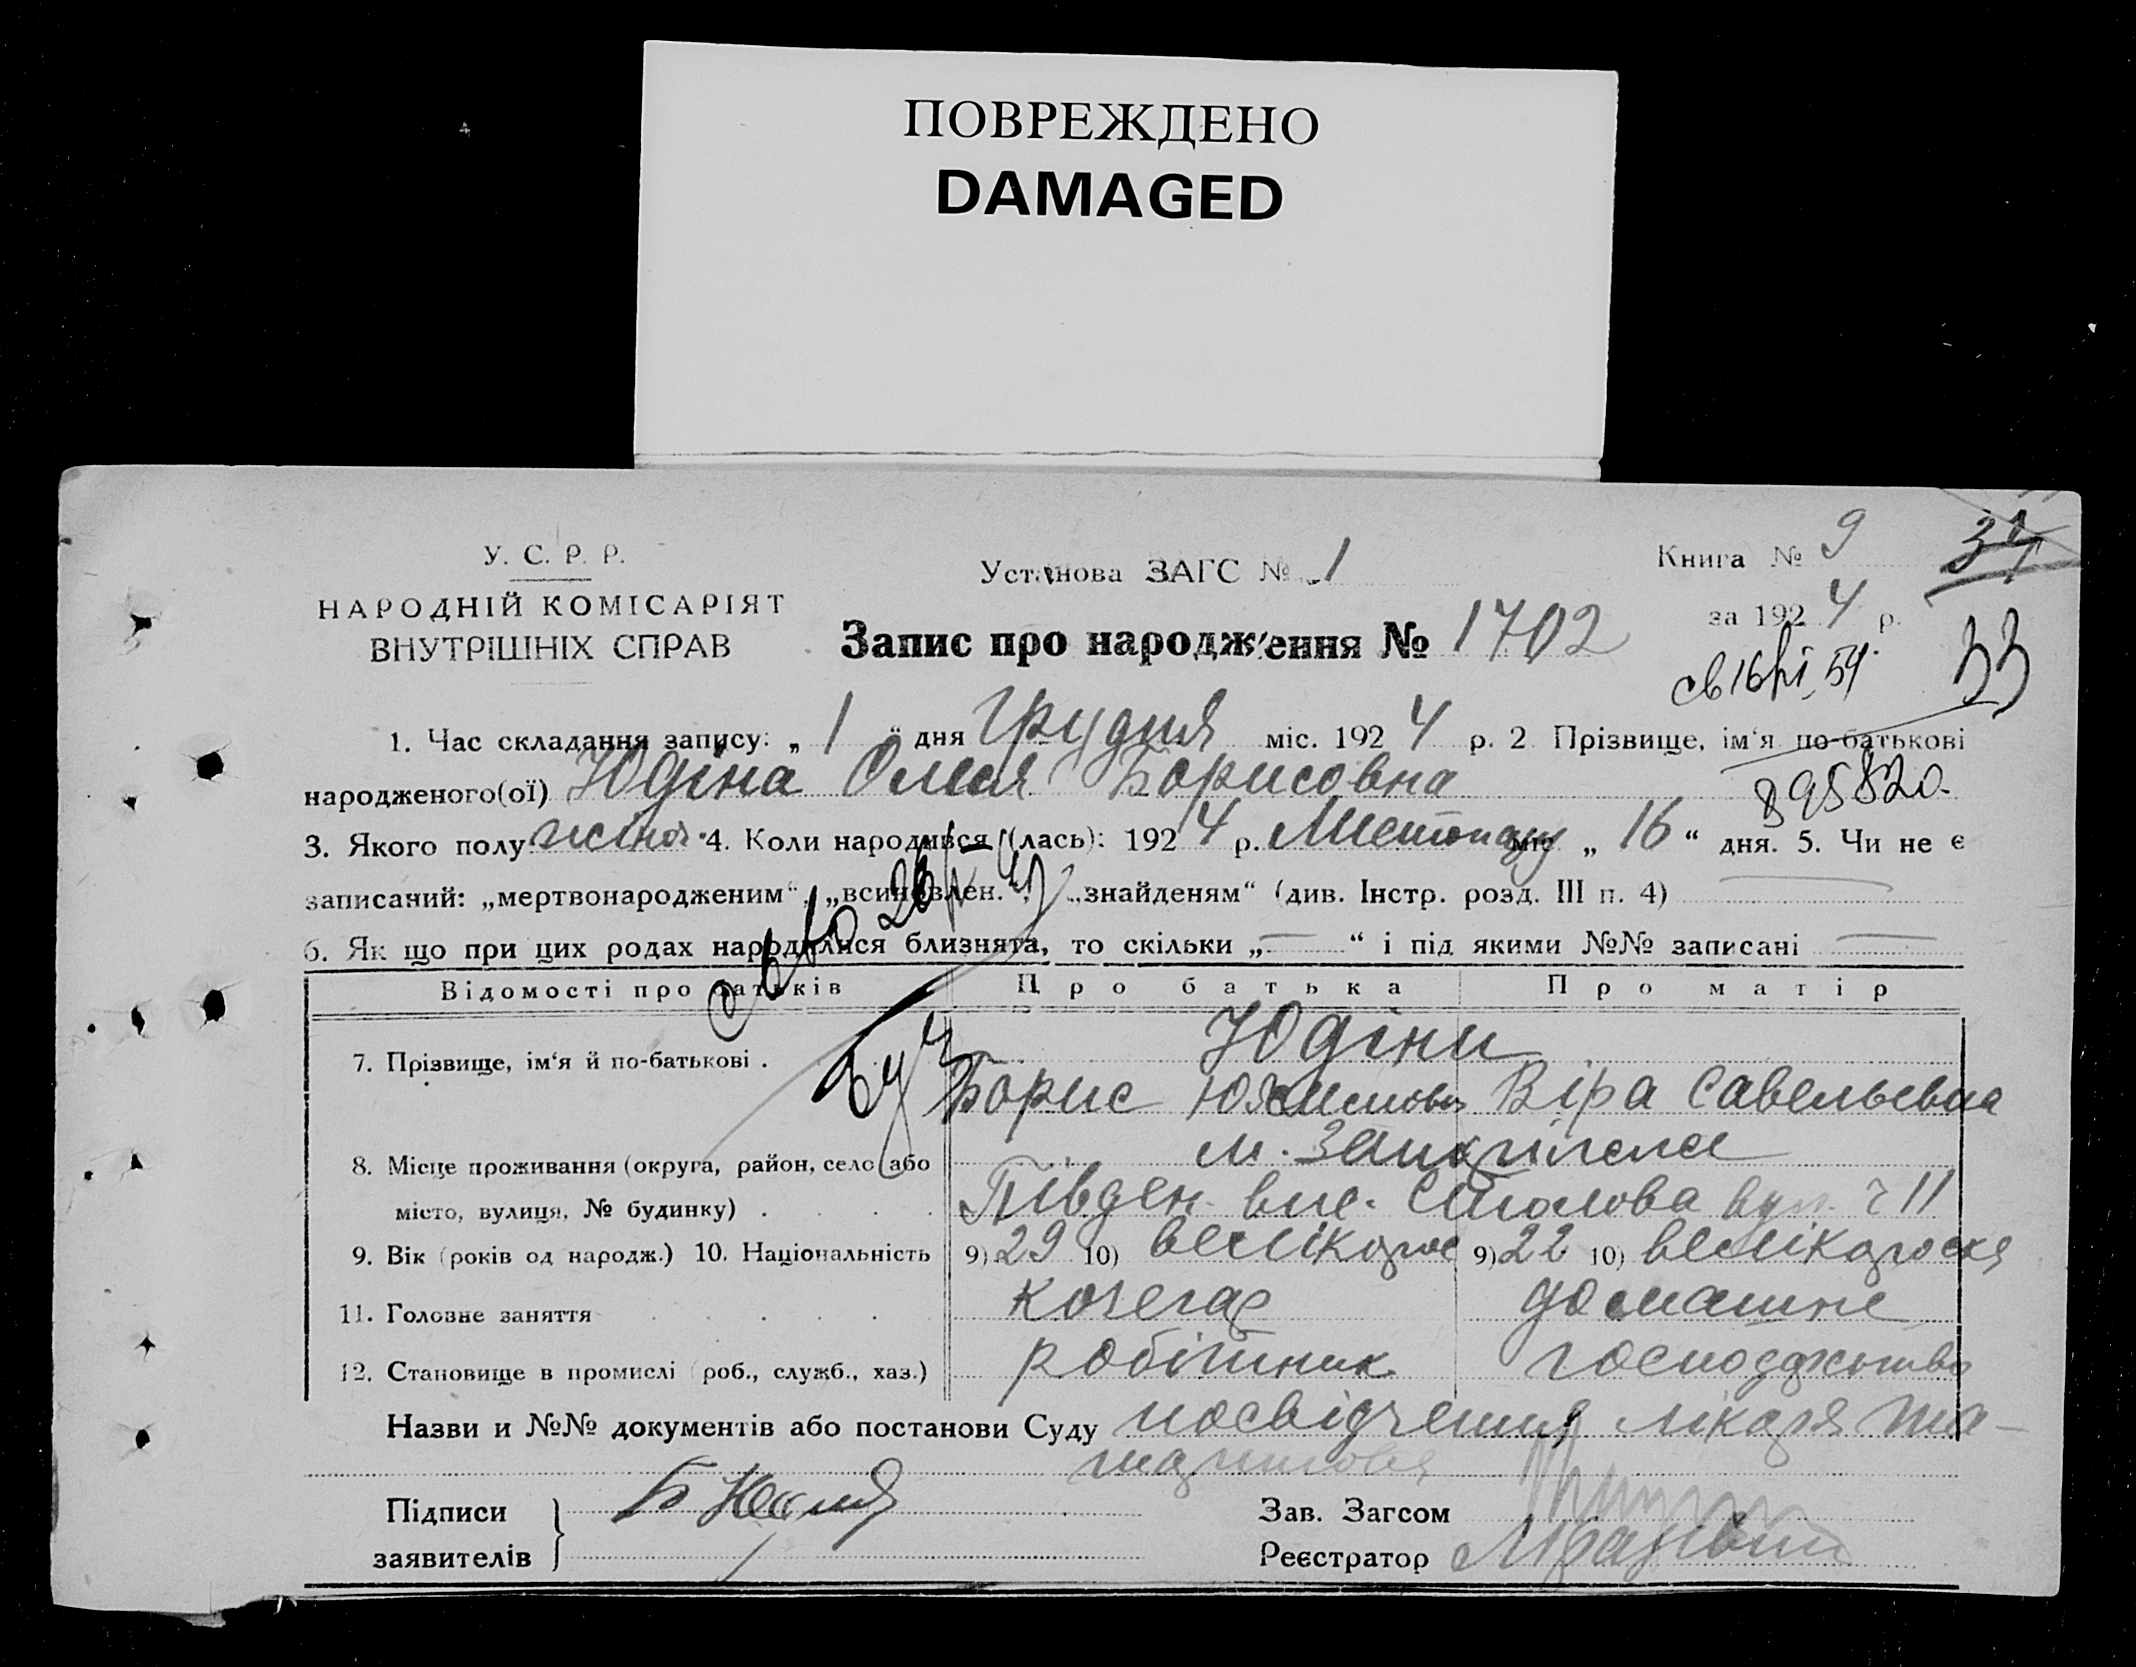 ПОВРЕЖДЕНО
DAMAGED
У. С. Р. Р.
НАРОДНІЙ КОМІСАРІЯТ
ВНУТРІШНІХ СПРАВ
Установа ЗАГС № 1
Книга № 9
34
за 1924 р.
Запис про народження № 1702
33
1. Час складання запису: „ 1 “ дня Грудня міс. 1924 р. 2 Прізвище, ім‘я по-батькові
народженого(ої) Юдіна Борисовна
895820
3. Якого полу жіноч. 4. Коли народився (лась): 1924 р. Листопаду міс. „ 16 “ дня. 5. Чи не є
записаний: „мертвонародженим“, „всиновлен.“, „знайденям“ (див. Інстр. розд. III п. 4)
6. Як що при цих родах народилися близнята, то скільки „ — “ і під якими №№ записані —
Відомості про батьків Про батька Про матір
7. Прізвище, ім‘я й по-батькові . Юдіни
Борис Віра Савельевна
8. Місце проживання (округа, район, село або
місто, вулиця, № будинку) . . . . Півден. вул. 11
9. Вік (років од народж.) 10. Національність 9) 29 10) велікорос 9) 22 10) велікороска
11. Головне заняття . . . . . кочегар домашнє
12. Становище в промислі (роб., служб., хаз.) робітник господжство
Назви и №№ документів або постанови Суду посвідчення лікаря
Підписи
заявителів
Зав. Загсом
Реєстратор